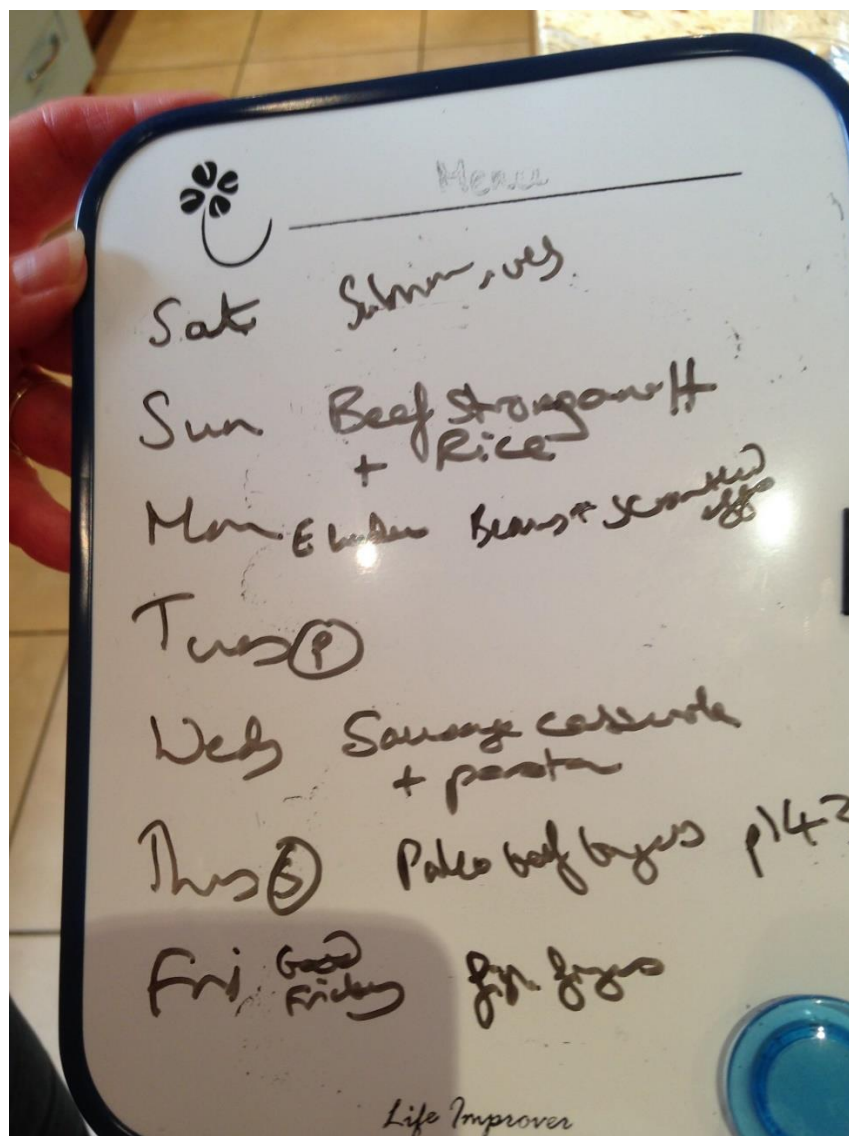 Menu
Sat
Sun Beef Stroganoff
+ Rice
Mon Beans + scrambled
eggs
Tues P
Weds Sausage casserole
+ pasta
Thurs S Paleo beef burgers p142
Fri Good
Friday fish fingers
Life Improver